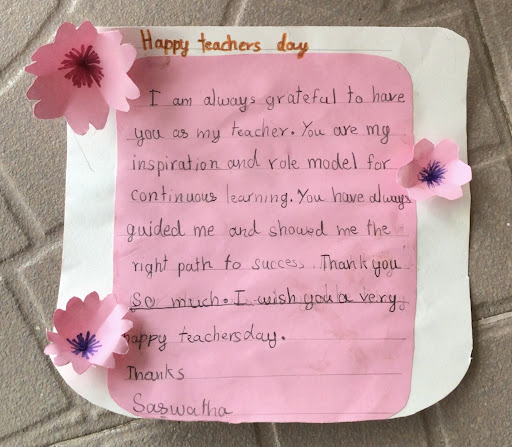 Happy teachers day
I am always grateful to have
you as my teacher. You are my
inspiration and role model for
continuous learning. You have always
guided me and showed me the
right path to success. Thank you
so much. I wish you a very
happy teachersday.
Thanks
Saswatha